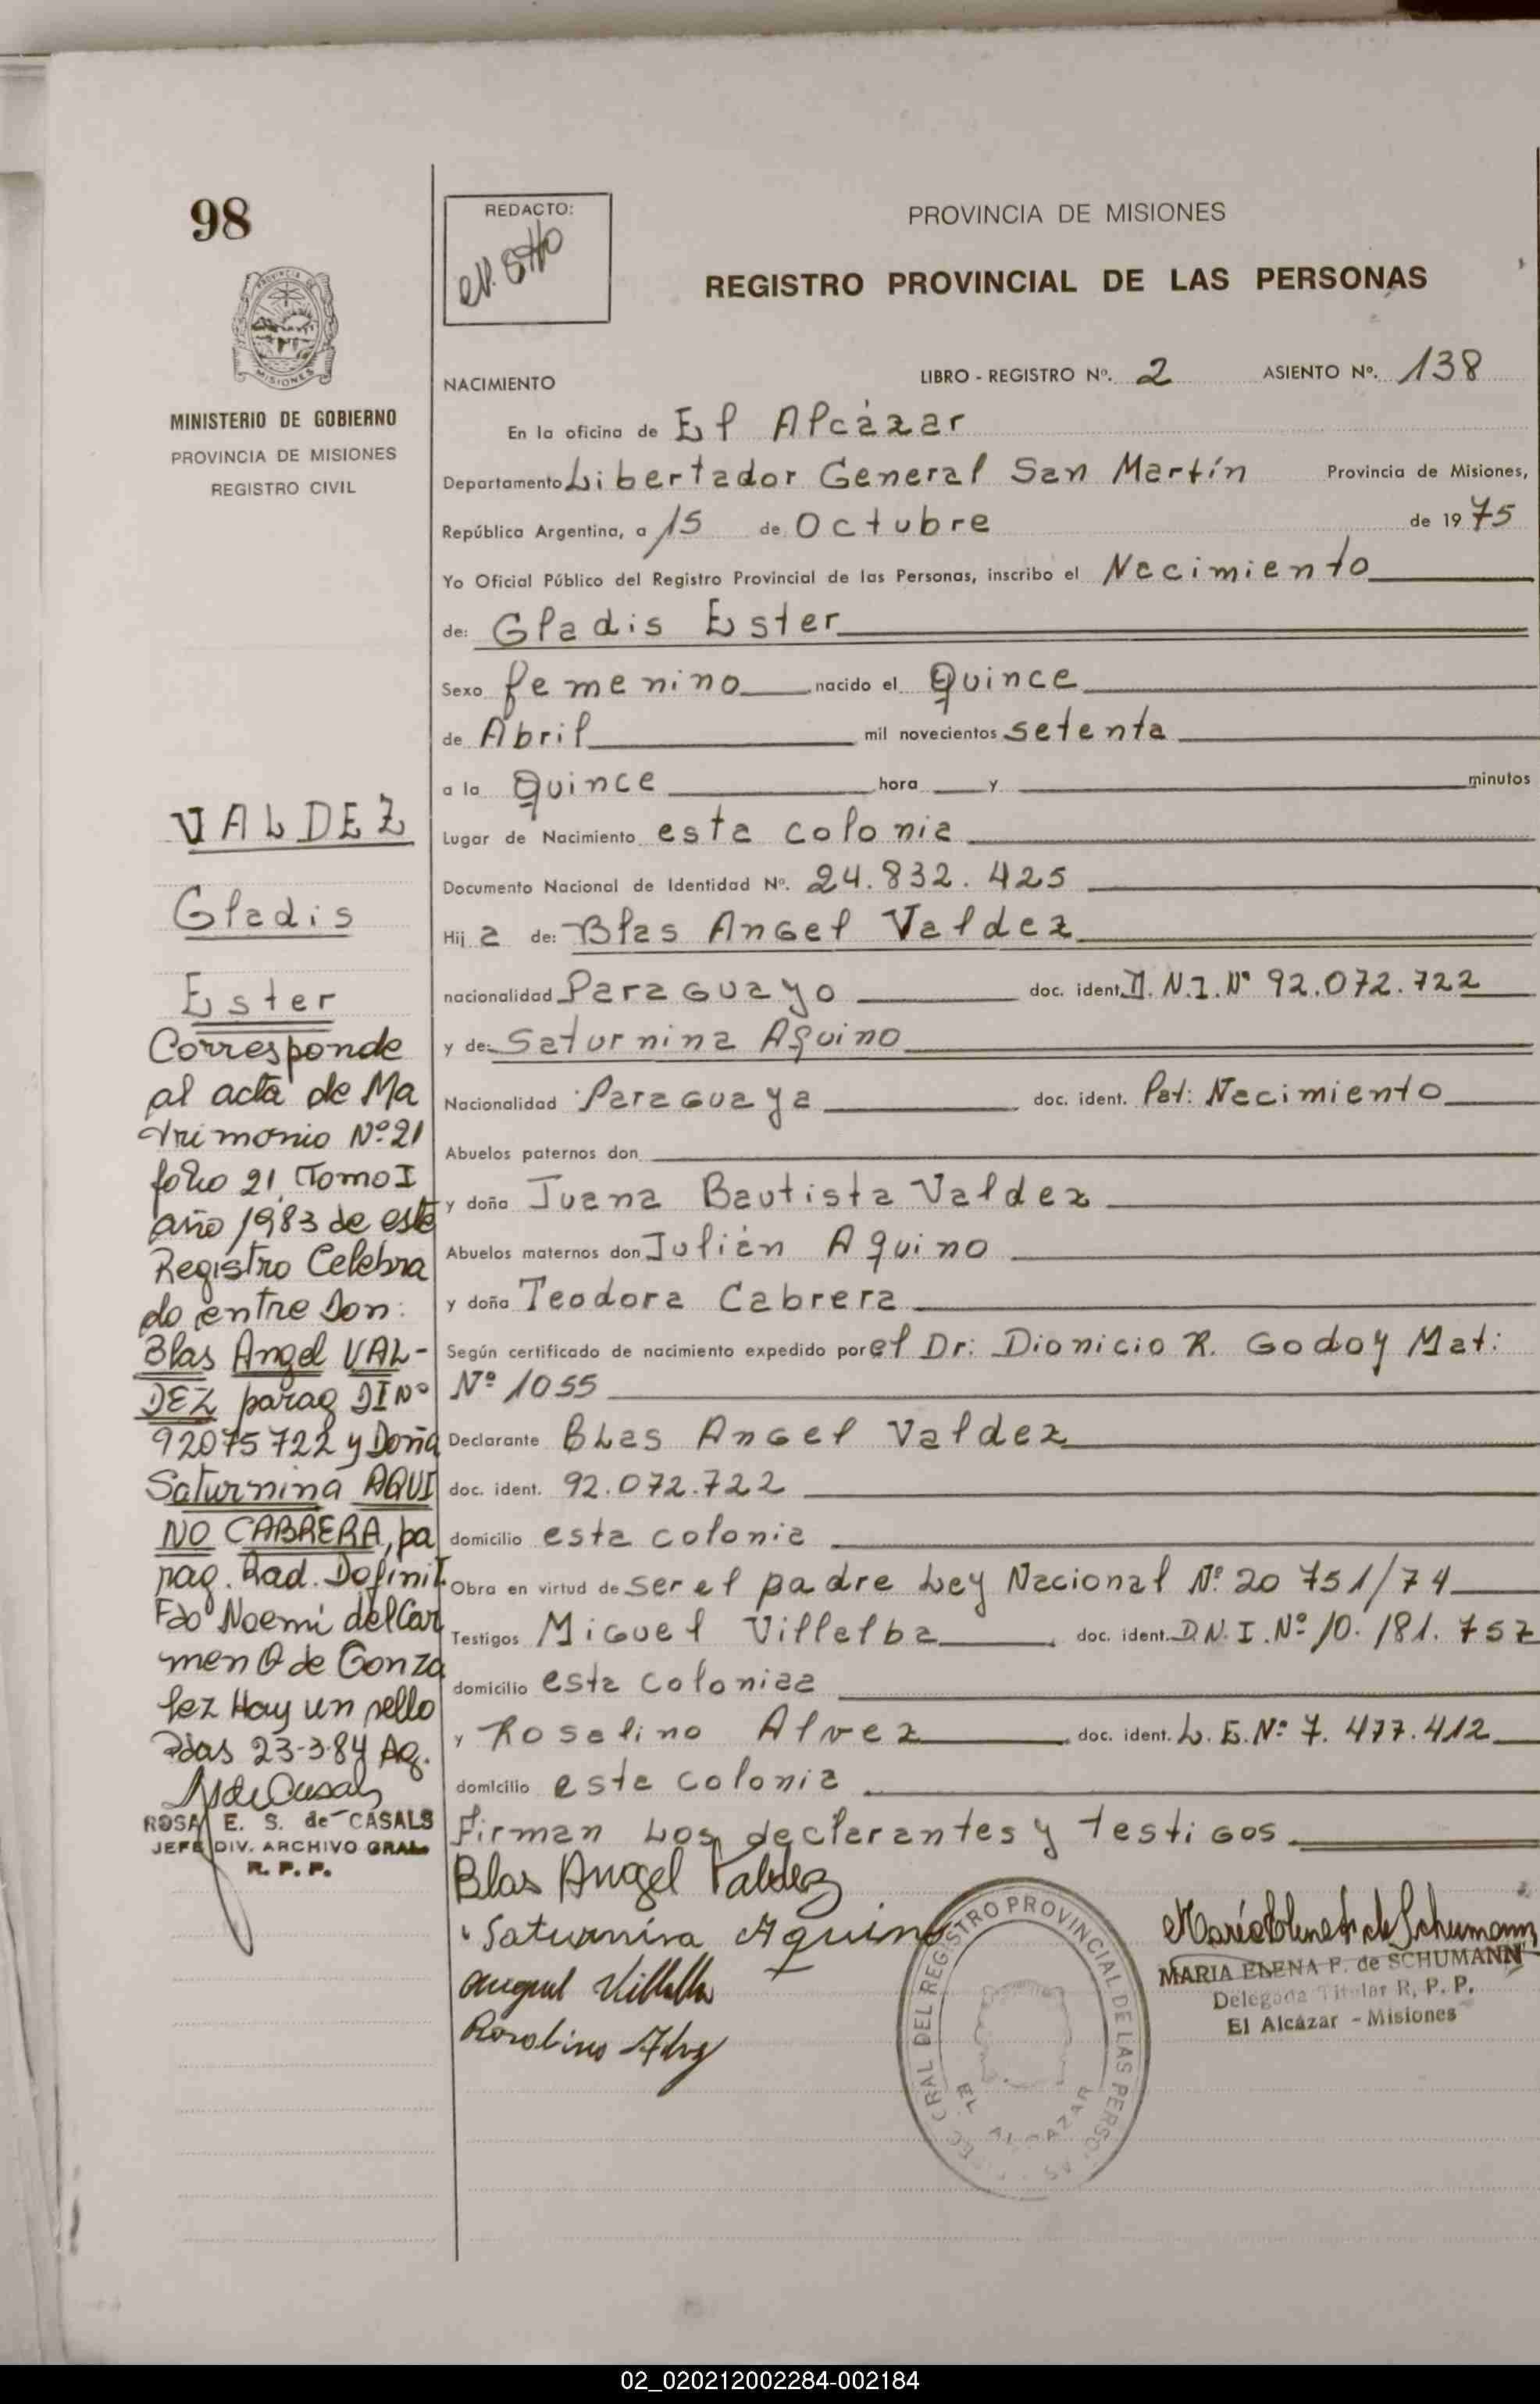 98
PROVINCIA DE
MISIONES
MINISTERIO DE GOBIERNO
PROVINCIA DE MISIONES
REGISTRO CIVIL
REDACTO:
PROVINCIA DE MISIONES
REGISTRO PROVINCIAL DE LAS PERSONAS
NACIMIENTO LIBRO - REGISTRO Nº. 2 ASIENTO Nº. 138
En la oficina de El Alcázar
Departamento Libertador General San Martín Provincia de Misiones,
República Argentina, a 15 de Octubre de 1975
Yo Oficial Público del Registro Provincial de las Personas, inscribo el Nacimiento
de: Gladis Ester
Sexo femenino nacido el Quince
de Abril mil novecientos setenta
a la Quince hora y minutos
Lugar de Nacimiento esta colonia
Documento Nacional de Identidad Nº. 24.832.425
Hija de: Blas Angel Valdez
nacionalidad Paraguayo doc. ident. D.N.I. Nº 92.072.722
y de: Saturnina Aquino
Nacionalidad Paraguaya doc. ident. Pat: Nacimiento
Abuelos paternos don
y doña Juana Bautista Valdez
Abuelos maternos don Julián Aquino
y doña Teodora Cabrera
Según certificado de nacimiento expedido por el Dr: Dionicio R. Godoy Mat:
Nº 1055
Declarante Blas Angel Valdez
doc. ident. 92.072.722
domicilio esta colonia
Obra en virtud de ser el padre Ley Nacional Nº 20 751/74
Testigos Miguel Villalba doc. ident. D.N.I. Nº 10.181.757
domicilio esta coloniaa
y Roselino Alvez doc. ident. L.E. Nº 7.477.412
domicilio esta colonia
Firman Los declarantes y testigos
Blas Angel Valdez
Saturnina Aquino
Miguel Villalba
Roselino Alvez
VALDEZ
Gladis
Ester
Corresponde
al acta de Ma
trimonio Nº 21
folio 21 Tomo I
año 1983 de este
Registro Celebra
do entre Don:
Blas Angel VAL-
DEZ parag DI Nº
92075722 y Doña
Saturnina AQUI
NO CABRERA, pa
rag. Rad. Definit
Fdo Noemi del Car
men O de Gonza
lez Hay un sello
Pdas 23-3-84 Ag.
ROSA E. S. de CASALS
JEFE DIV. ARCHIVO GRAL.
R. P. P.
GRAL DEL REGISTRO PROVINCIAL DE LAS PERSONAS
EL ALCAZAR
MARIA ELENA F. de SCHUMANN
Delegada Titular R. P. P.
El Alcázar - Misiones
02_020212002284-002184